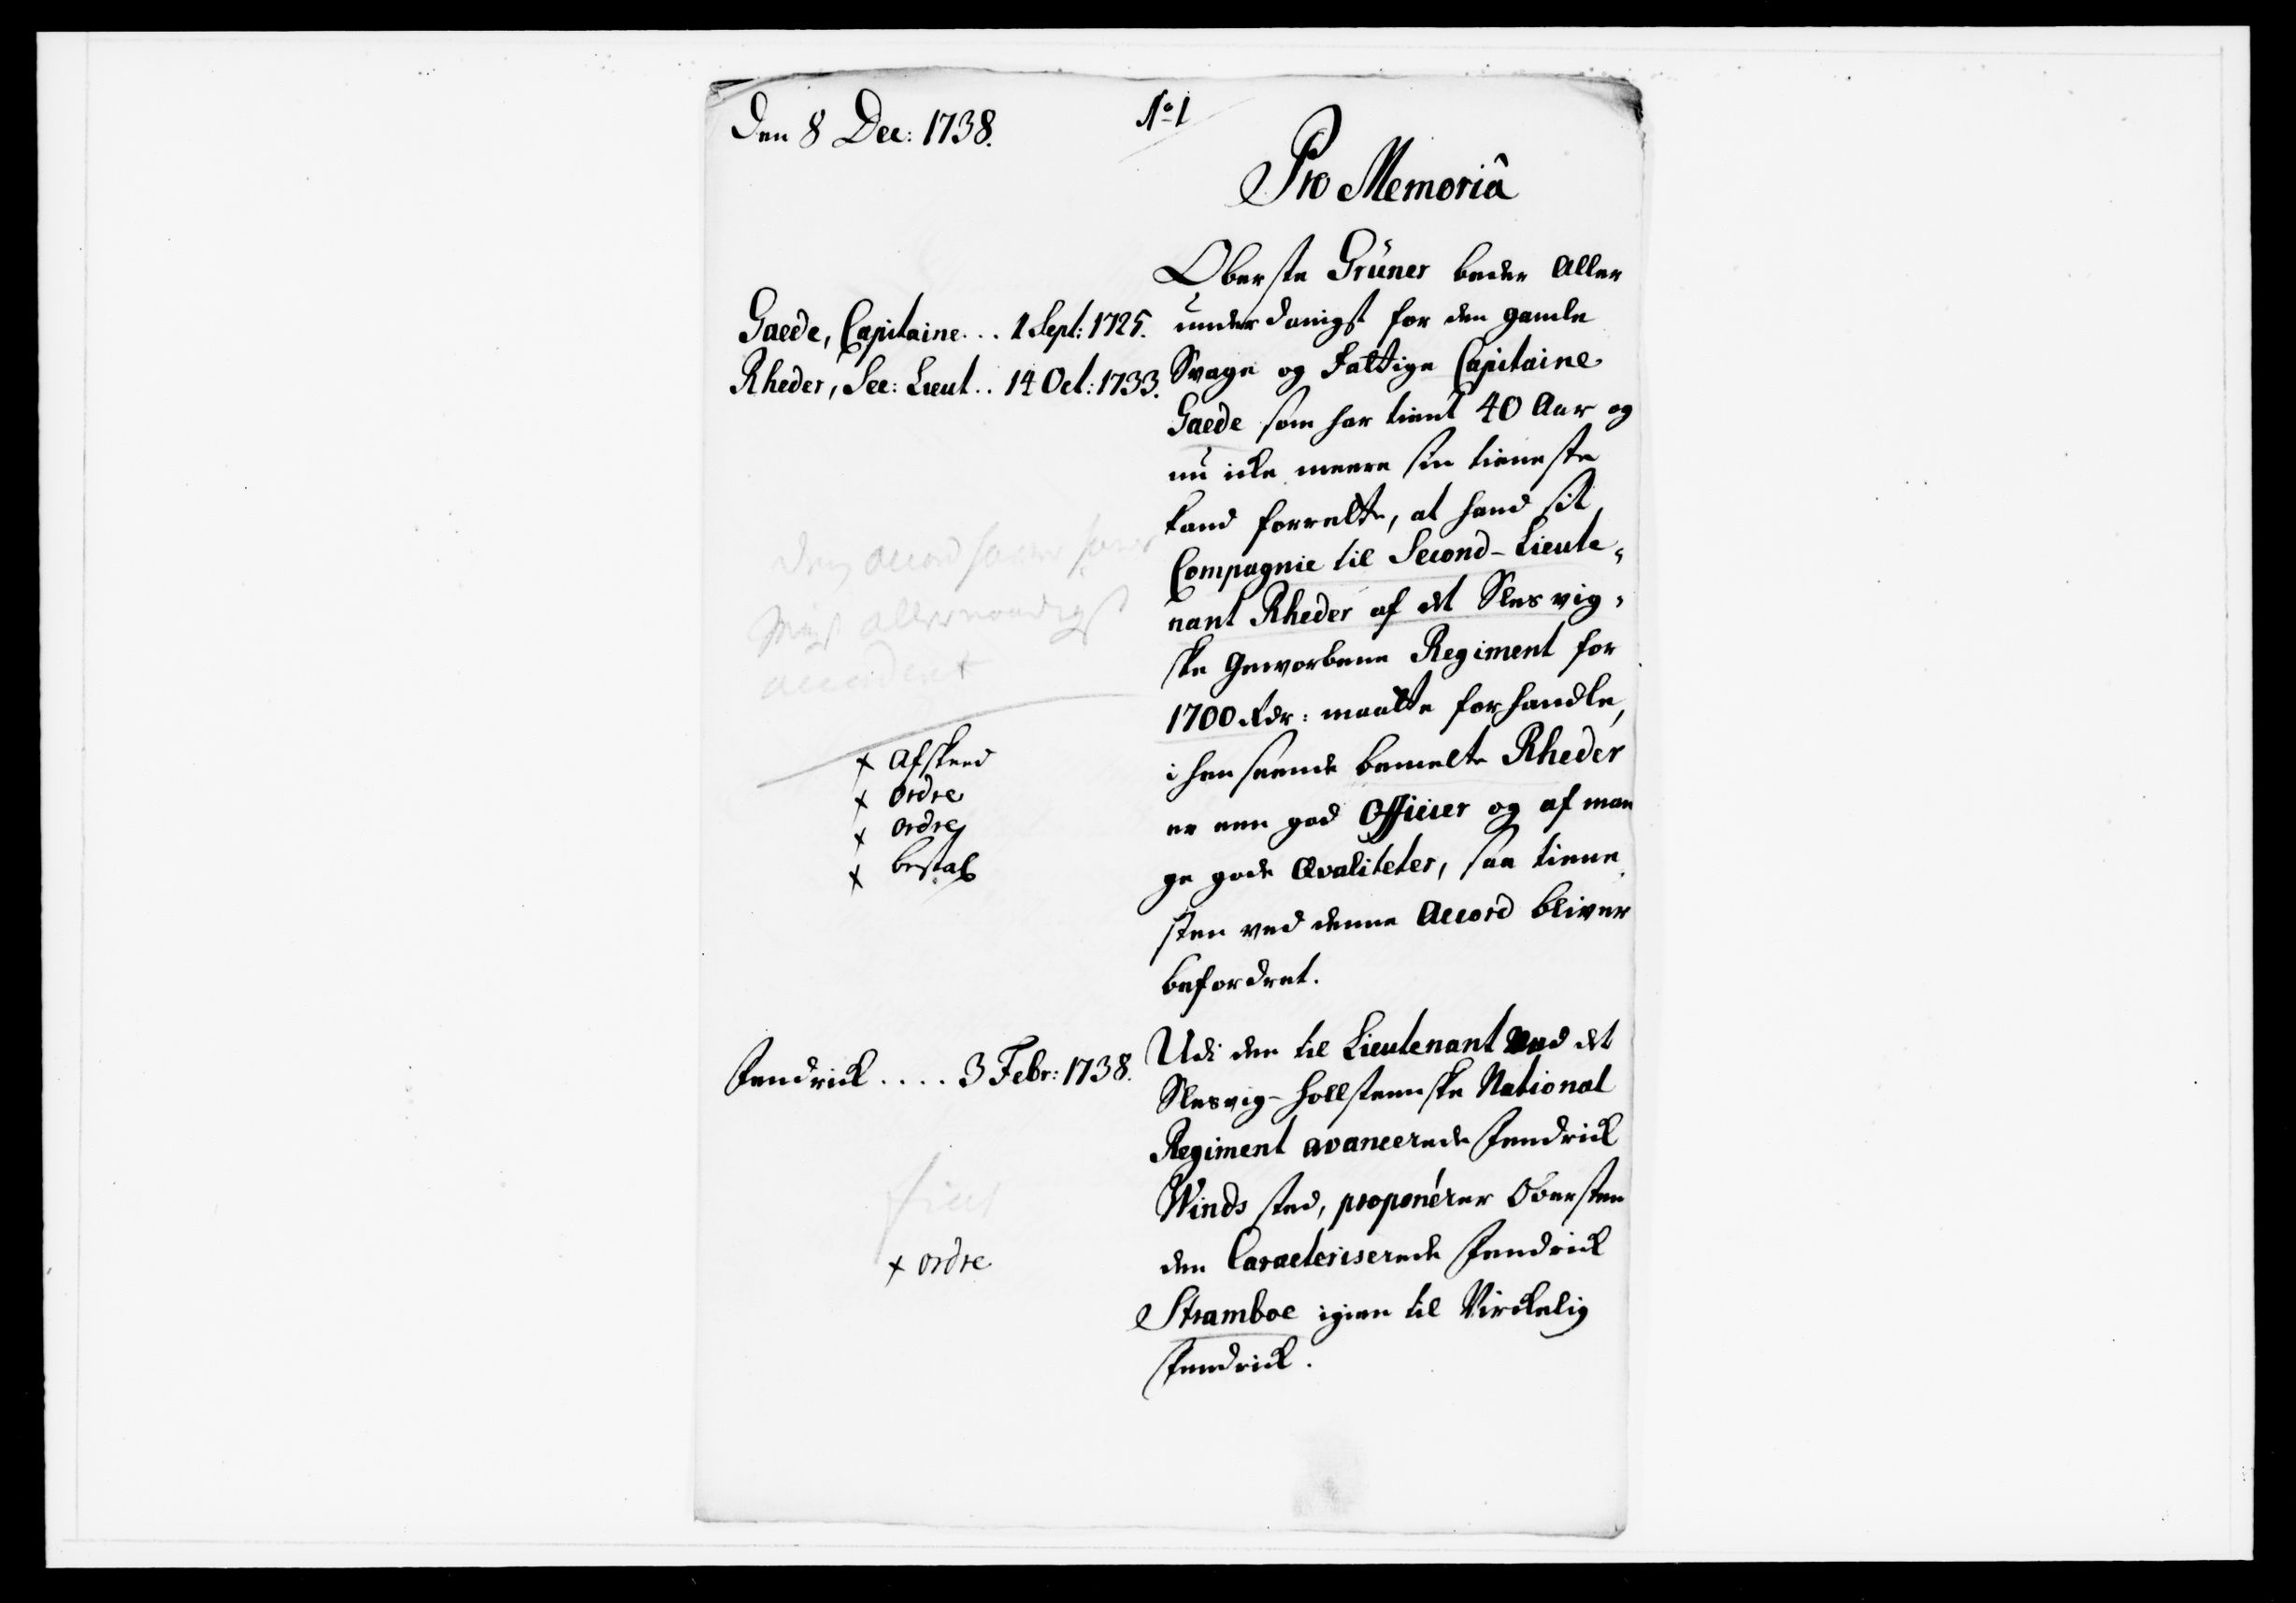 Den 8 Dec: 1738.
No 1
Pro Memoriâ
Gaede, Capitaine... 1 Sept: 1725.
Rheder, Sec: Lieut.. 14 Oct: 1733.
Oberste Grüner beder Aller
underdanigst for den gamle
Svage og Fattige Capitaine
Gaede som har tient 40 Aar og
nu icke meere sin tieneste
kand forrette, at hand sit
Compagnie til Second-Lieute-
nant Rheder af det Slesvig-
ske Geworbene Regiment for
1700 Rdr: maatte forhandle,
i henseende bemelte Rheder
er een god Officier og af man
ge gode Qvaliteter, saa tiene
sten ved denne Accord bliver
befordret.
allernaadigst
accordert
x Afskeed
x ordre
x ordre
x bestal
Fendrick .... 3 Febr: 1738.
Udi den til Lieutenant ved det
Slesvig-Hollsteenske National
Regiment avancerede Fendrick
Winds sted, proponérer Obersten
den Caracteriserede Fendrick
Stramboe igien til Virckelig
Fendrick.
fiat
x ordre